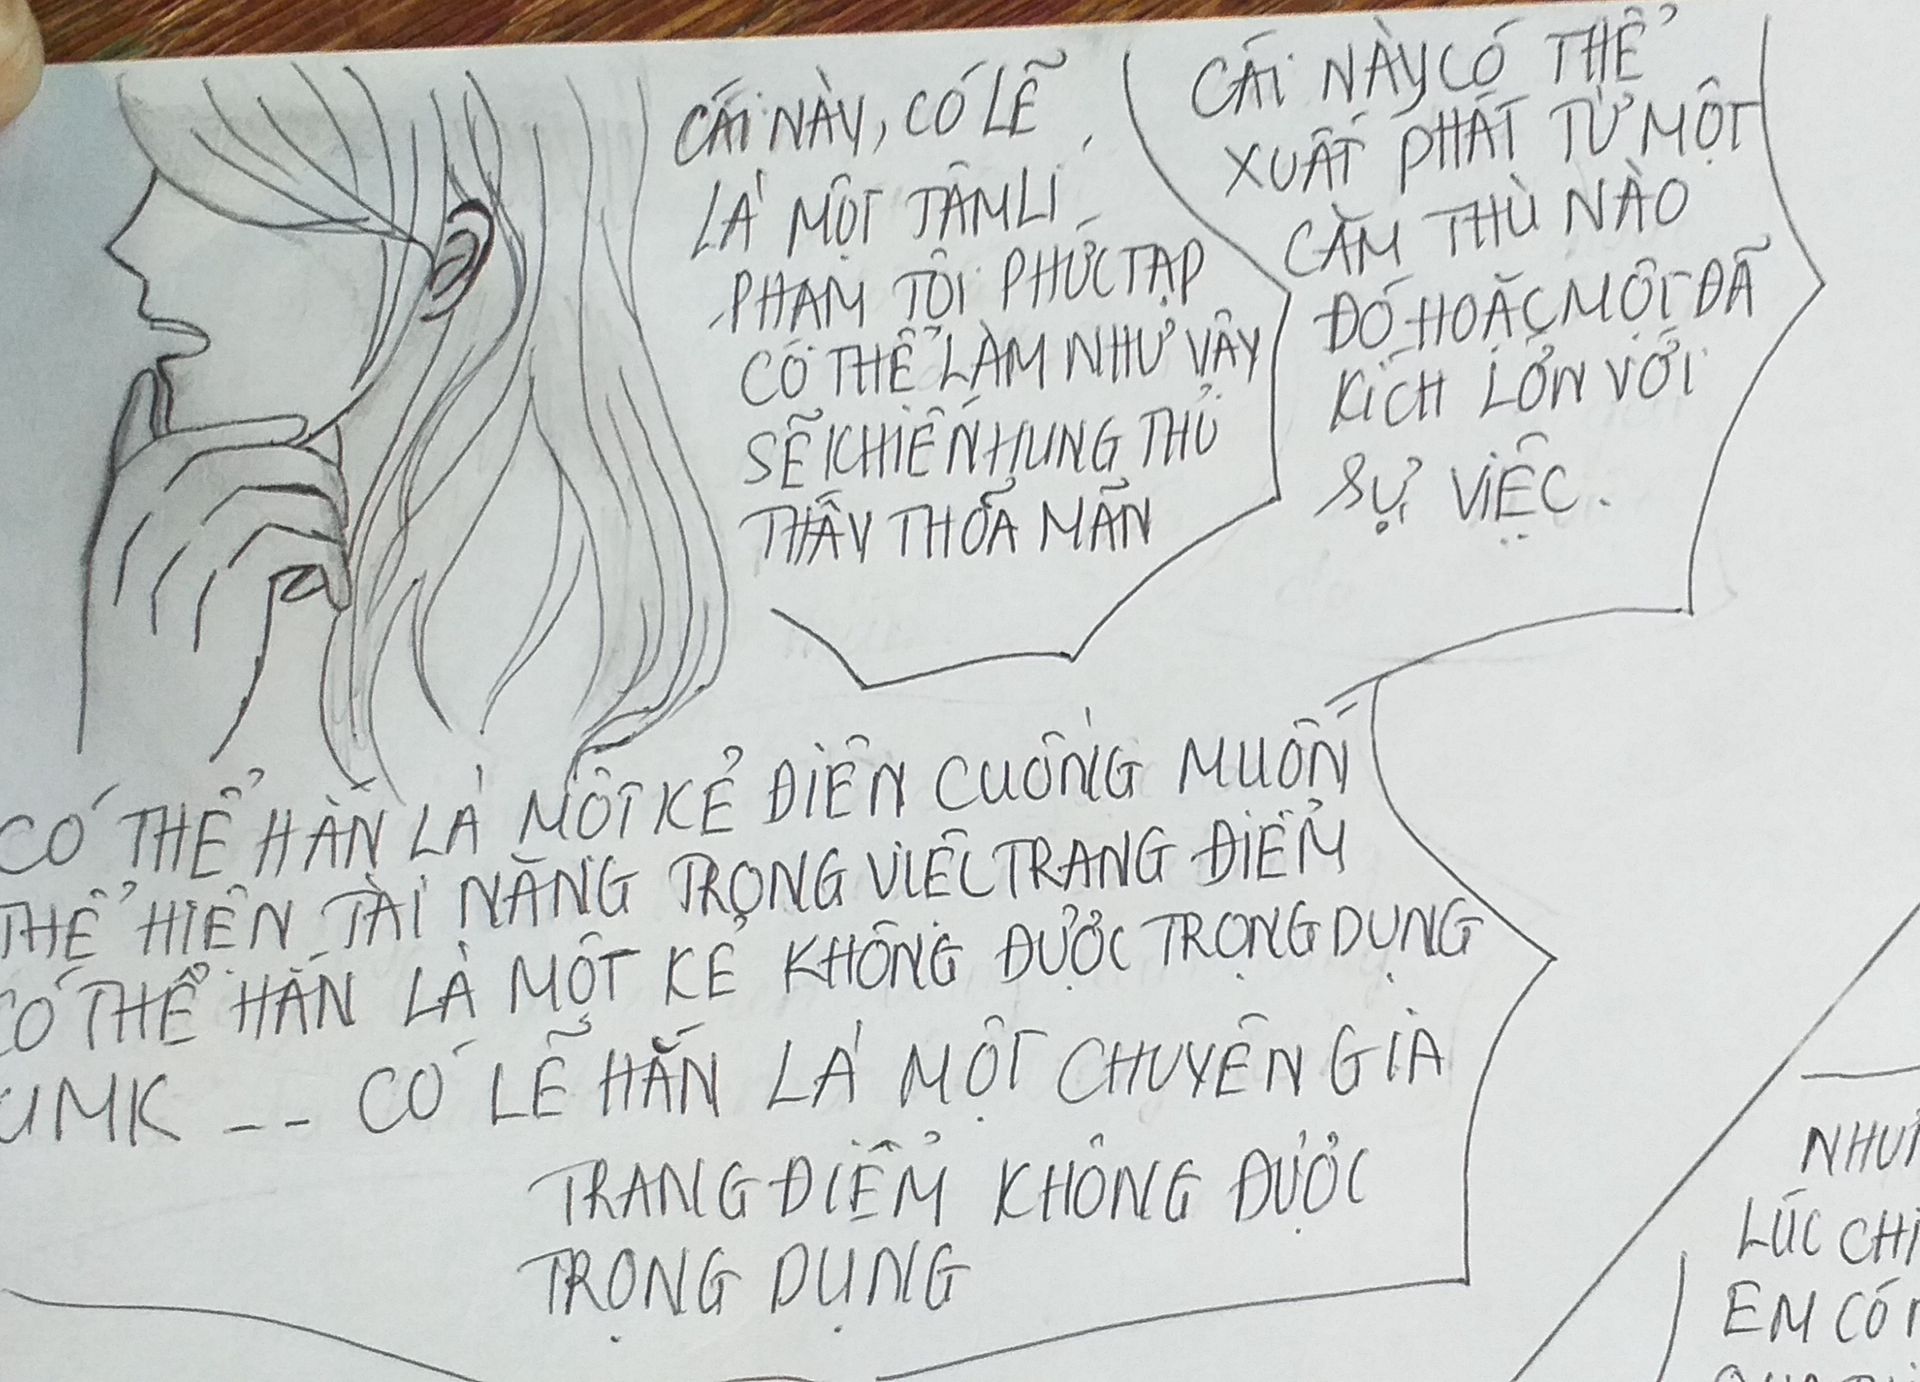 CÁI NÀY, CÓ LẼ
LÀ MỘT TÂM LÍ
PHẠM TỘI PHỨC TẠP
CÓ THỂ LÀM NHƯ VẬY
SẼ KHIẾN HUNG THỦ
THẤY THỎA MÃN
CÁI NÀY CÓ THỂ
XUẤT PHÁT TỪ MỘT
CĂM THÙ NÀO
ĐÓ HOẶC MỘT ĐÃ
KÍCH LỚN VỚI
SỰ VIỆC.
CÓ THỂ HẮN LÀ MỘT KẺ ĐIÊN CUỒNG MUỐN
THỂ HIỆN TÀI NĂNG TRONG VIỆC TRANG ĐIỂM
CÓ THỂ HẮN LÀ MỘT KẺ KHÔNG ĐƯỢC TRỌNG DỤNG
UMK -- CÓ LẼ HẮN LÀ MỘT CHUYÊN GIA
TRANG ĐIỂM KHÔNG ĐƯỢC
TRỌNG DỤNG
LÚC
EM CÓ